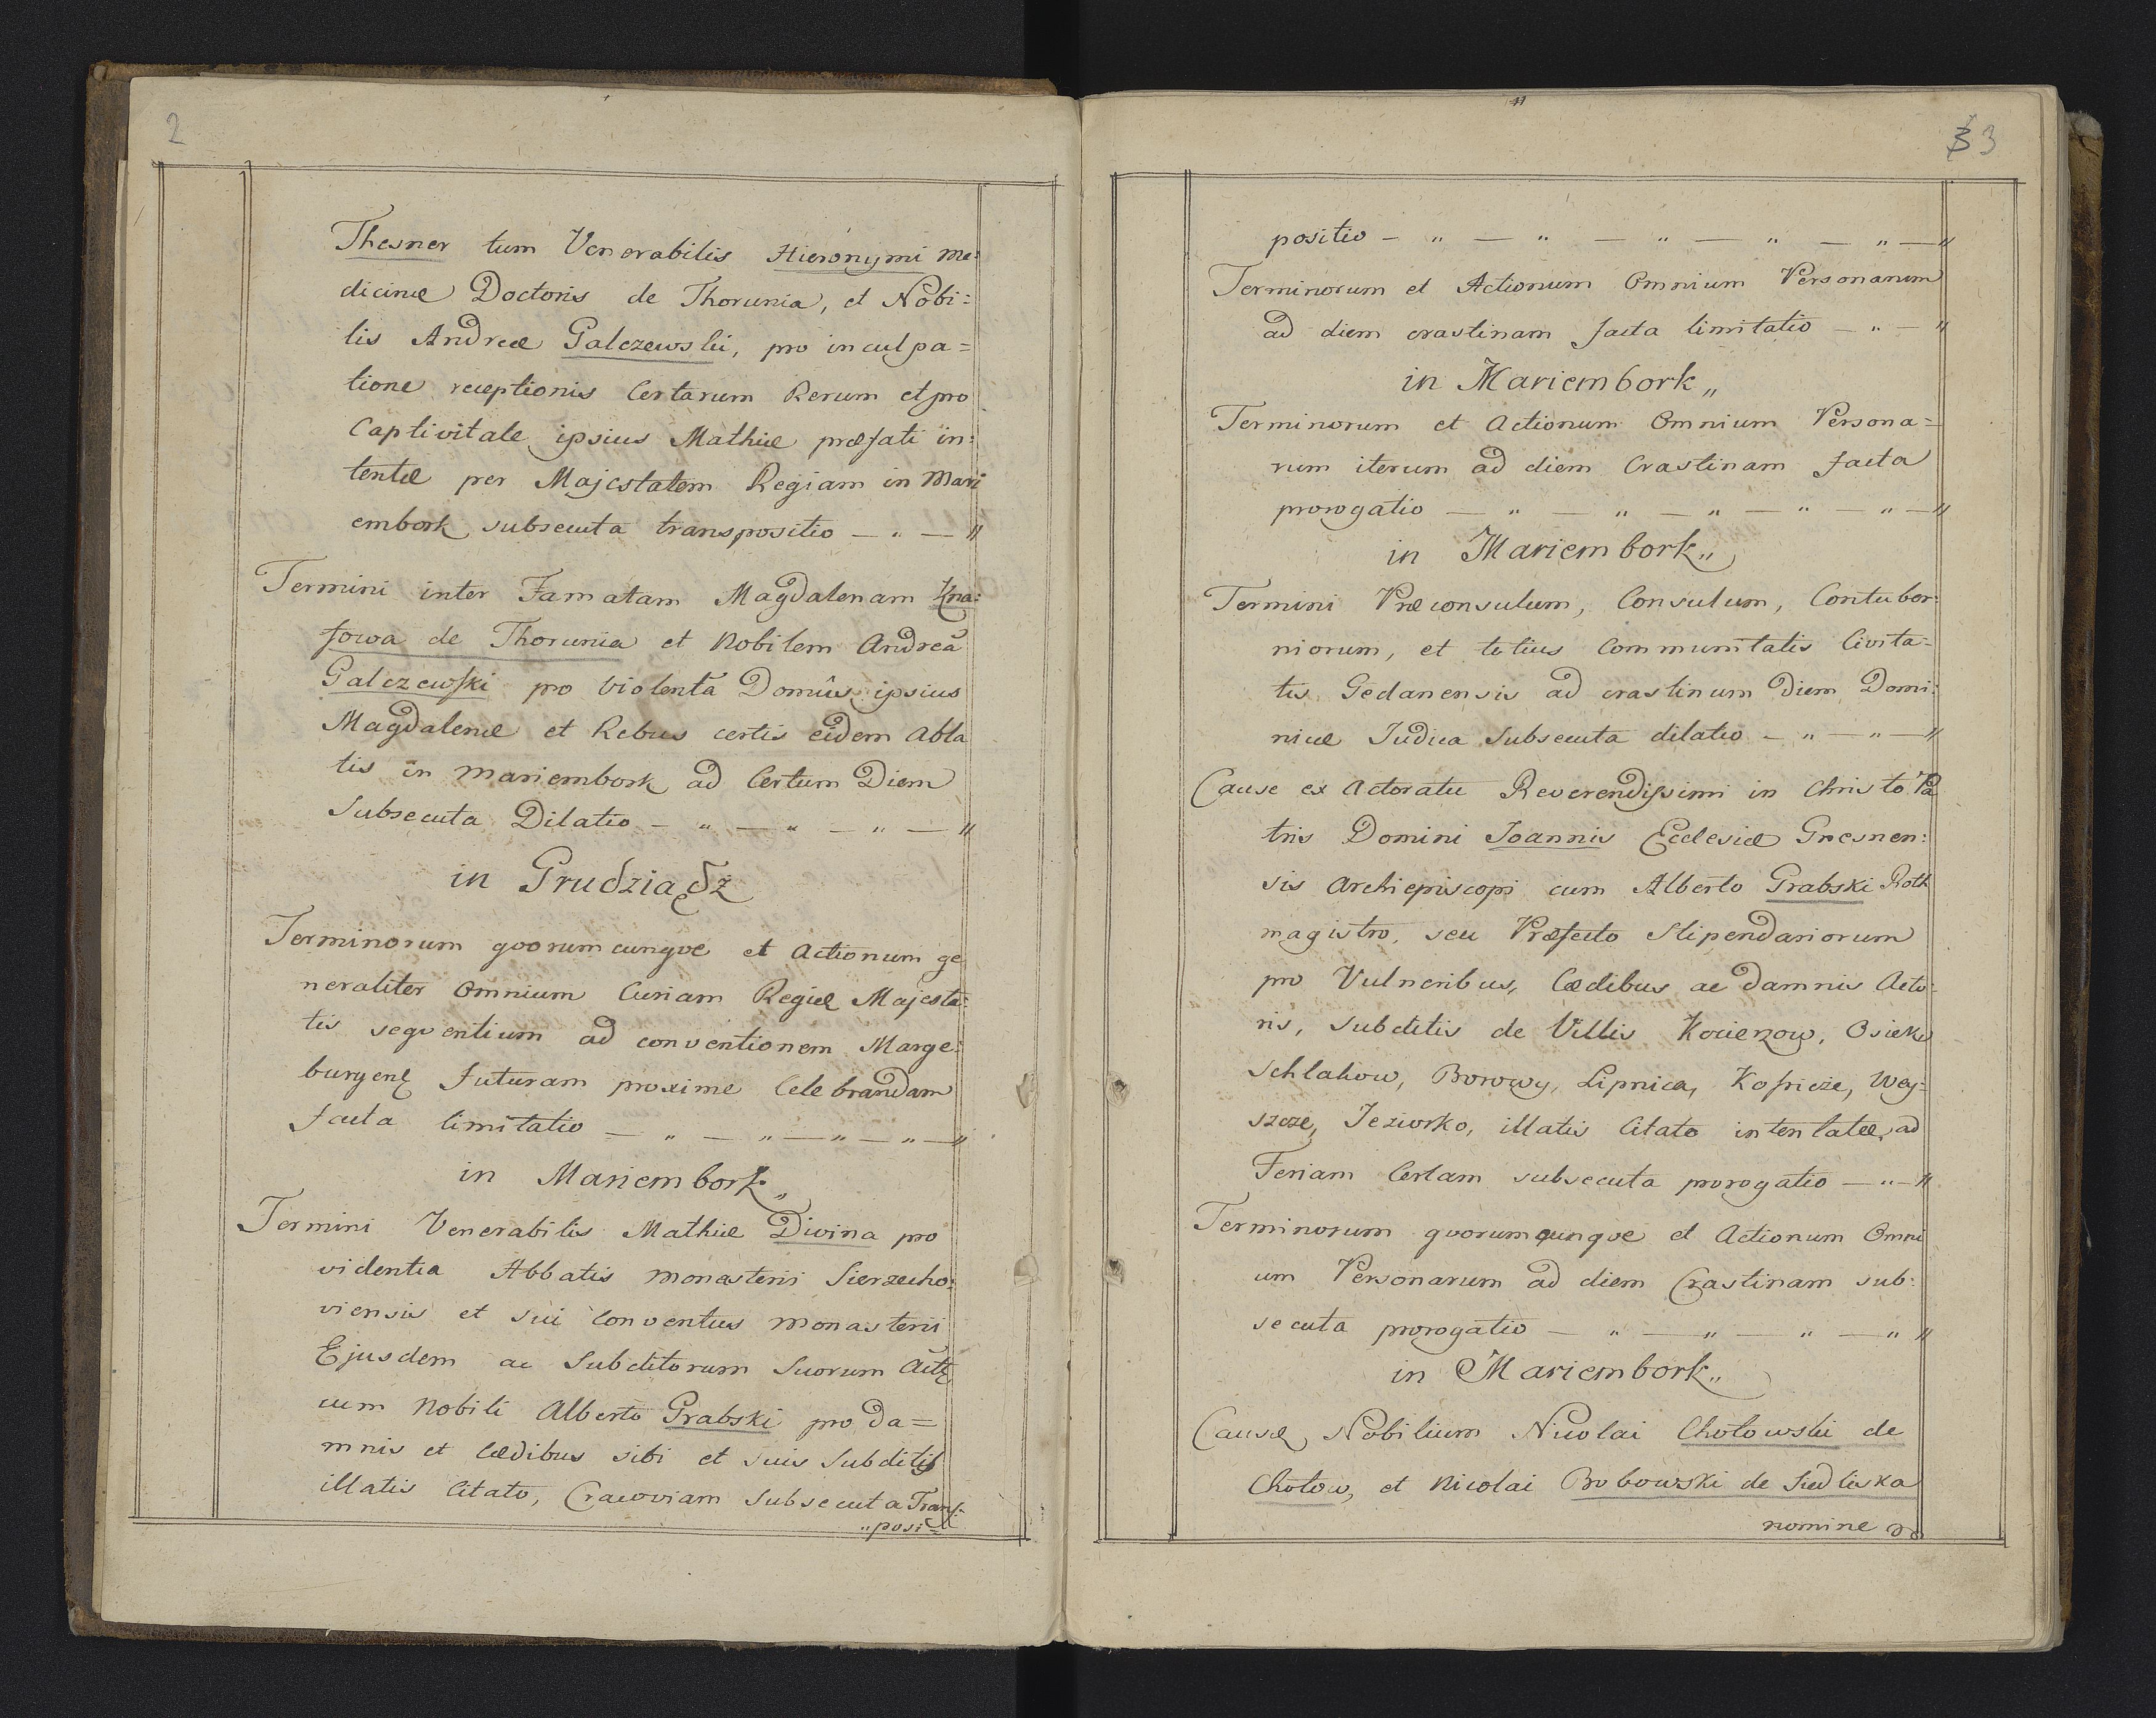 2
Thesner tum Venerabilis Hieronymi me:
dicinæ Doctoris de Thorunia, et Nobi:
lis Andreæ Galczewski, pro inculpa=
tione receptionis Certarum Rerum et pro
Captivitate ipsius Mathiæ præfati in:
tentæ per Majestatem Regiam in Mari
embork subsecuta transpositio — " — "
Termini inter Famatam Magdalenam Kna:
fowa de Thorunia et Nobilem Andreã
Galczewski pro violenta Domûs ipsius
Magdalenæ et Rebus certis eidem abla
tis in Mariembork ad Certum Diem
Subsecuta Dilatio — " — " — " — "
in Grudziądz
Terminorum qvorumcunqve et Actionum ge
neraliter Omnium Curiam Regiæ Majesta:
tis seqventium ad conventionem Marge:
burgenę futuram proxime Celebrandam
facta limitatio — " — " — " — " — "
in Mariembork „
Termini Venerabilis Mathiæ Divina pro
videntia Abbatis Monasterii Sierzecho:
viensis et sui Conventus Monasterii
Ejusdem ac Subditorum Suorum
cum Nobili Alberto Grabski pro da=
mnis et Cædibus sibi et suis Subditis
illatis Citato, Cracoviam Subsecuta Trans:
"posi=
3 3
positio — " — " — " — " — " — "
Terminorum et Actionum Omnium Personarum
ad diem crastinam facta limitatio — " — "
in Mariembork „
Terminorum et Actionum Omnium Persona=
rum iterum ad diem Crastinam facta
prorogatio — " — " — " — " — " — "
in Mariembork „
Termini Præconsulum, Consulum, Contuber:
niorum, et totius Communitatis Civita-
tis Gedanensis ad crastinum Diem Domi:
nicæ Judica Subsecuta dilatio — " — " — "
Causæ ex Actoratu Reverendissimi in Christo Pa
tris Domini Joannis Ecclesiæ Gnesnen:
sis Archiepiscopi cum Alberto Grabski Roth
magistro, seu Præfecto Stipendariorum
pro Vulneribus, Cædibus ac damnis Acto:
ris, Subditis de Villis Kocierzow, Osiek
Schlahow, Borowy, Lipnica, Kossicze, Wey:
szcze, Jeziorko, illatis Citato intentatæ, ad
Feriam Certam subsecuta prorogatio — " — "
Terminorum qvorumqunqve et Actionum Omni
um Personarum ad diem Crastinam sub:
secuta prorogatio — " — " — " — " "
in Mariembork „
Causæ Nobilium Nicolai Chotowski de
Chotow, et Nicolai Bobowski de Siedliska
nomine